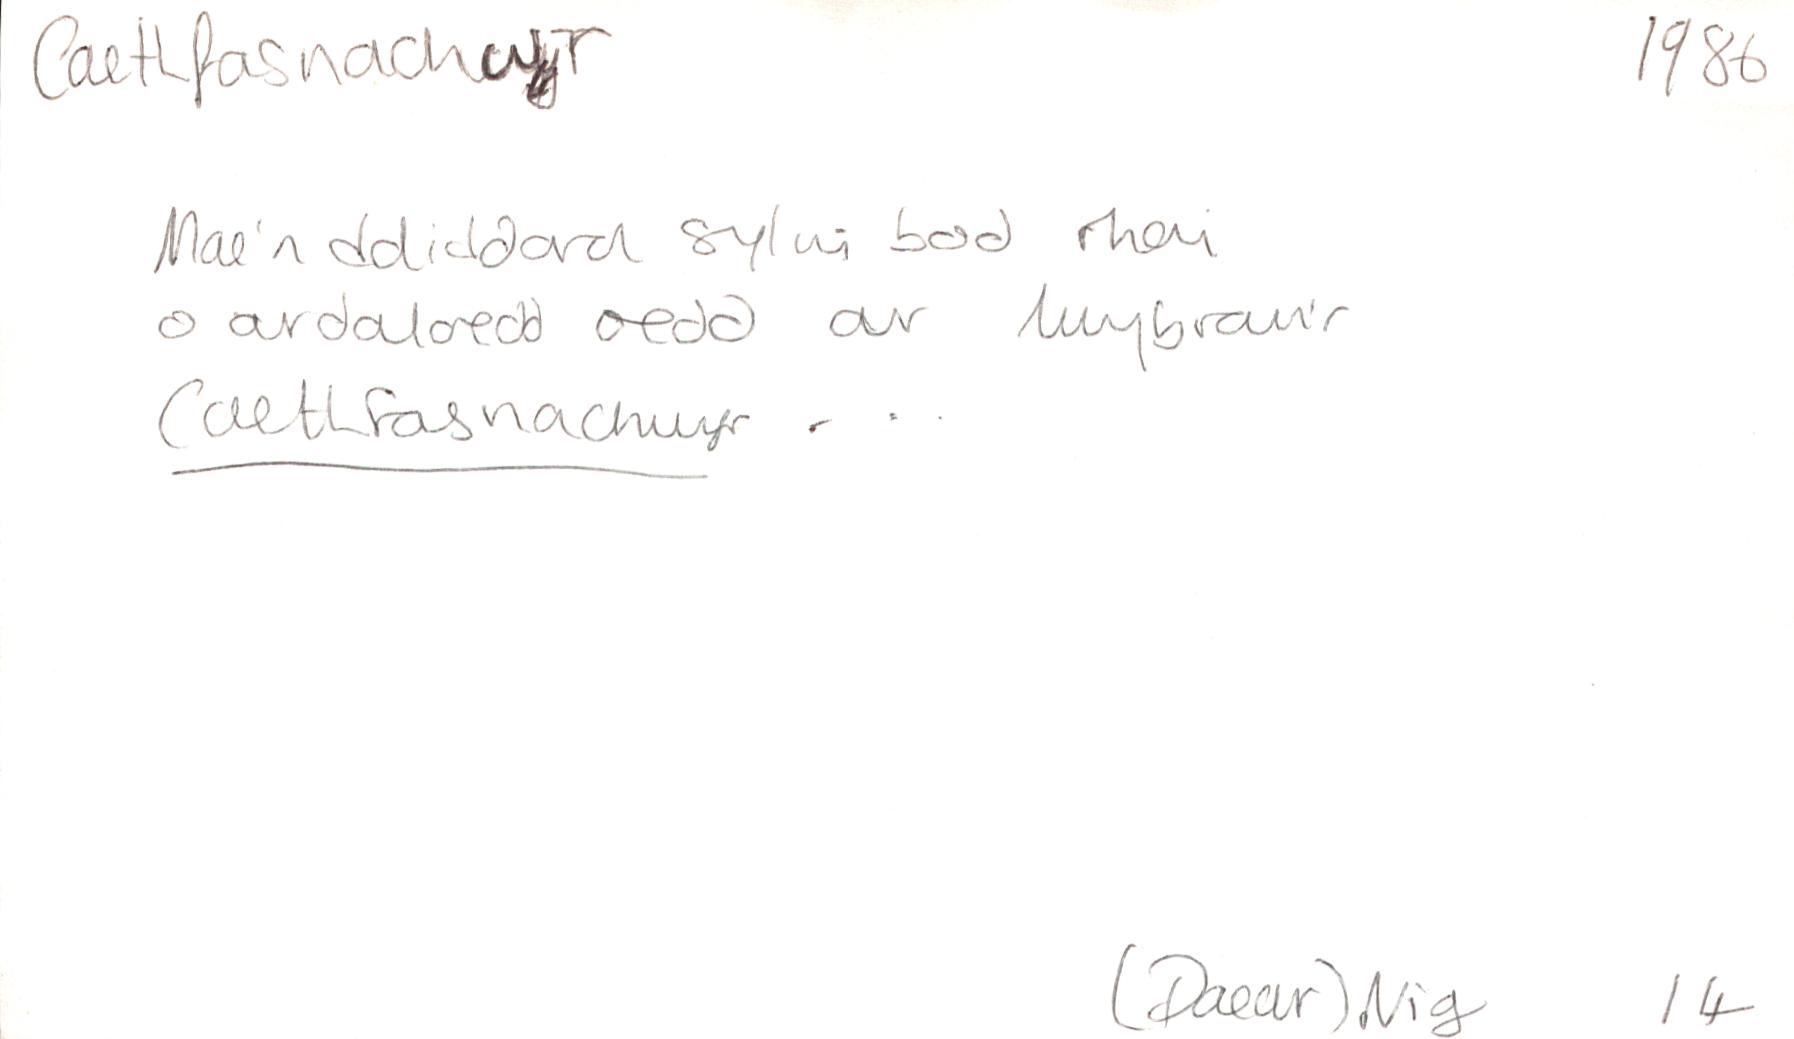 Caethfasnachwyr 1986
Mae'n ddiddorol sylwi bod rhai
o ardaloedd oedd ar lwybrau'r
Caethfasnachwyr . . .
(Daear). Nig 14